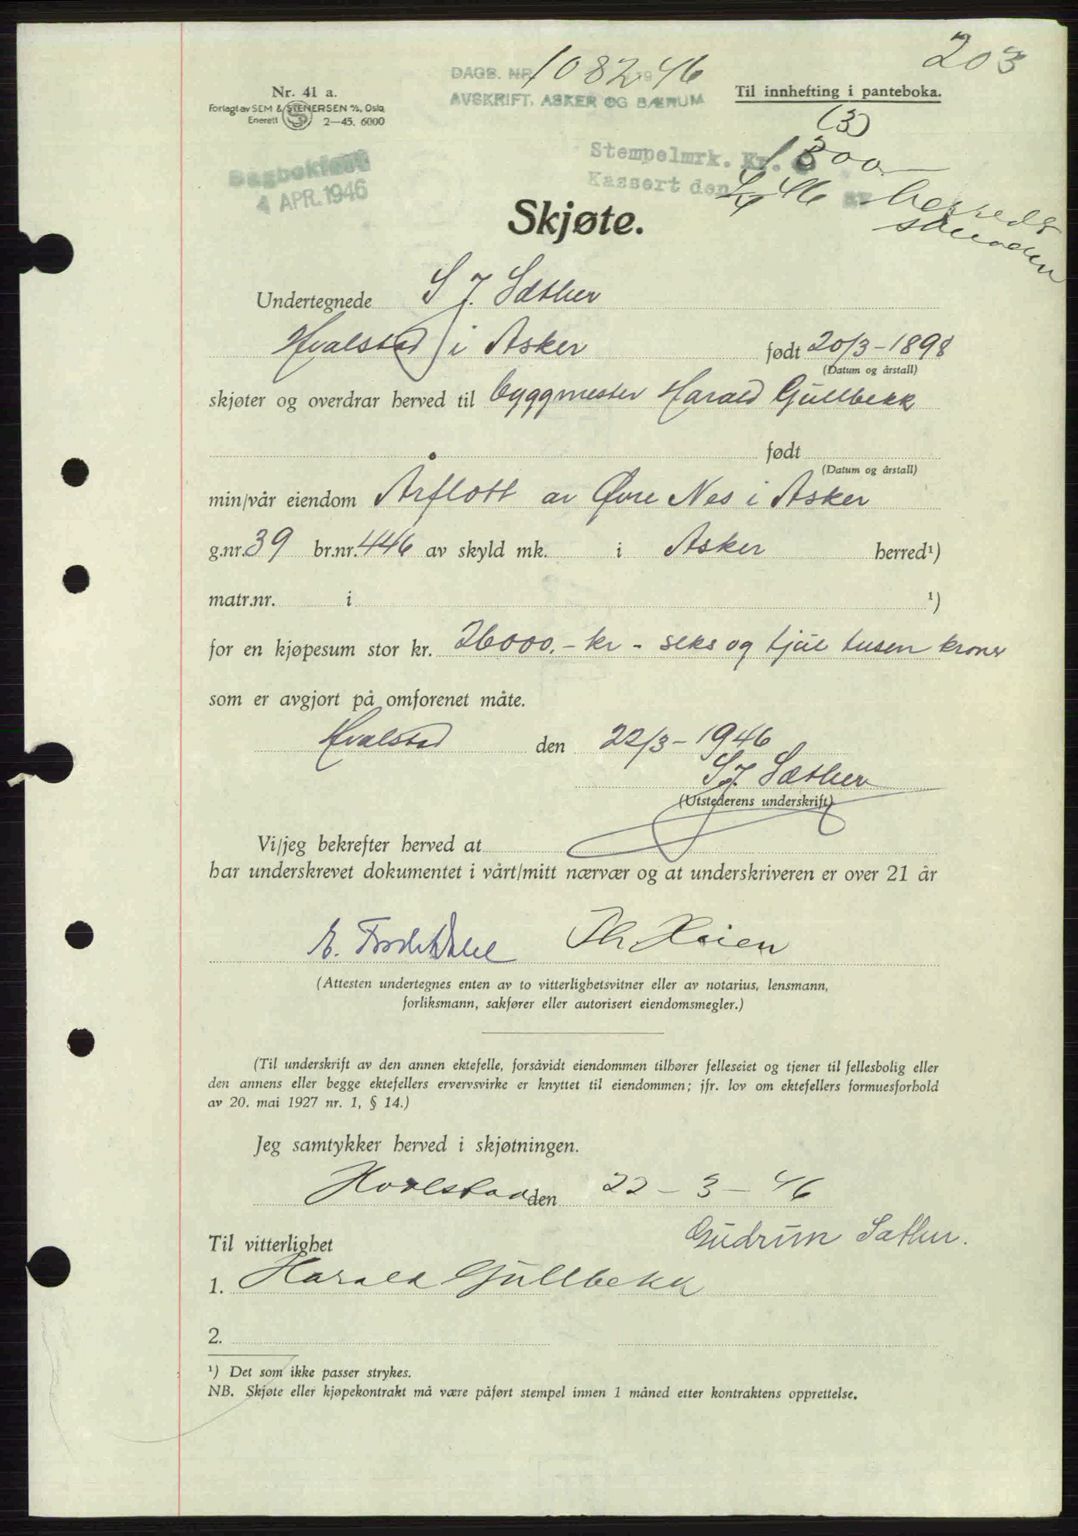 203
DAGB. NR. 1082 19 46
AVSKRIFT. ASKER OG BÆRUM
Nr. 41 a.
Forlagt av SEM & STENERSEN A/S, Oslo
Enerett 2—45. 6000
Til innhefting i panteboka.
(3)
Stempelmrk. Kr. 300
Kassert den 4/4 46 av
Dagbokført
4 APR. 1946
Skjøte.
Undertegnede S J. Sæther
Hvalstad i Asker født 20/3-1898
(Datum og årstall)
skjøter og overdrar herved til byggmester Harald Gullbekk
født
(Datum og årstall)
min/vår eiendom Årflott av Øvre Nes i Asker
g.nr. 39 br.nr. 446 av skyld mk. i Asker herred¹)
matr.nr. i ¹)
for en kjøpesum stor kr. 26000.- kr - seks og tjue tusen kroner
som er avgjort på omforenet måte.
Hvalstad den 22/3-1946
S J. Sæther
(Utstederens underskrift)
Vi/jeg bekrefter herved at
har underskrevet dokumentet i vårt/mitt nærvær og at underskriveren er over 21 år
E. Th. Høien
(Attesten undertegnes enten av to vitterlighetsvitner eller av notarius, lensmann,
forliksmann, sakfører eller autorisert eiendomsmegler.)
(Til underskrift av den annen ektefelle, forsåvidt eiendommen tilhører felleseiet og tjener til fellesbolig eller
den annens eller begge ektefellers ervervsvirke er knyttet til eiendommen; jfr. lov om ektefellers formuesforhold
av 20. mai 1927 nr. 1, § 14.)
Jeg samtykker herved i skjøtningen.
Hvalstad den 22-3-46
Gudrun Sæther.
Til vitterlighet
1. Harald Gullbekk
2.
¹) Det som ikke passer strykes.
NB. Skjøte eller kjøpekontrakt må være påført stempel innen 1 måned etter kontraktens opprettelse.